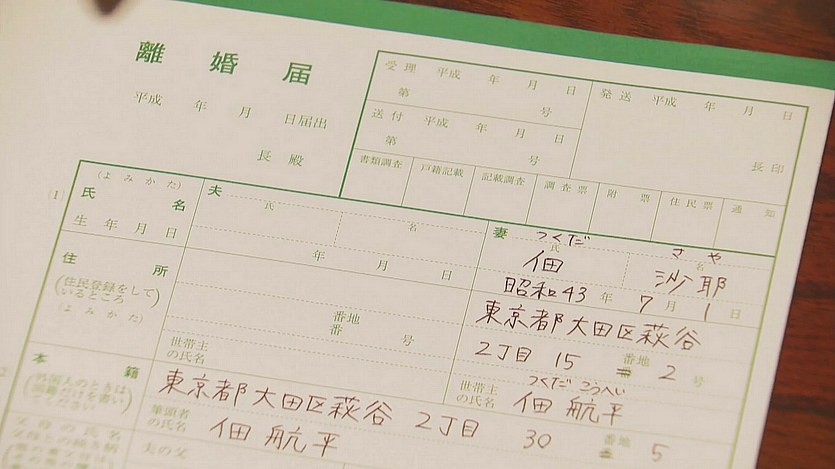 離婚届
平成 年 月 日届出
長殿
受理 平成 年 月 日
第 号
送付 平成 年 月 日
第 号
発送 平成 年 月 日
長印
書類調査 戸籍記載 記載調査 調査票 附票 住民票 通知
(1)
(よみかた)
氏名
生年月日
夫
氏 名
年 月 日
妻
つくだ さや
氏 名
佃 沙耶
昭和43年7月1日
住所
(住民登録をしているところ)
(よみかた)
番地
番 号
世帯主の氏名
東京都大田区萩谷
2丁目 15 番地 2 号
世帯主の氏名
つくだ こうへい
佃 航平
本籍
(外国人のときは国籍だけを書いてください)
東京都大田区萩谷 2丁目 30 番地 5
筆頭者の氏名
佃 航平
父母の氏名
夫の父